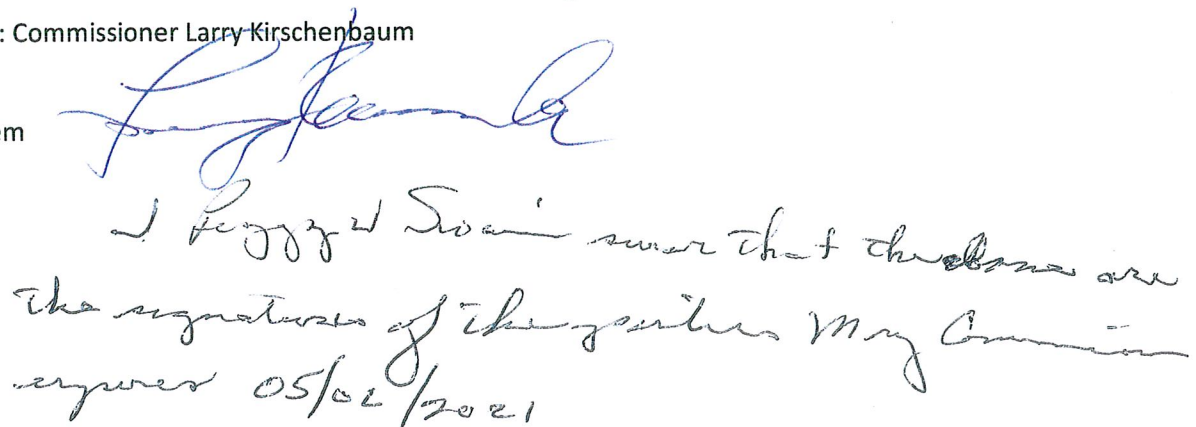 : Commissioner Larry Kirschenbaum
em
I Peggy W Swain swear that the above are
the signatures of the parties My Commission
expires 05/02/2021